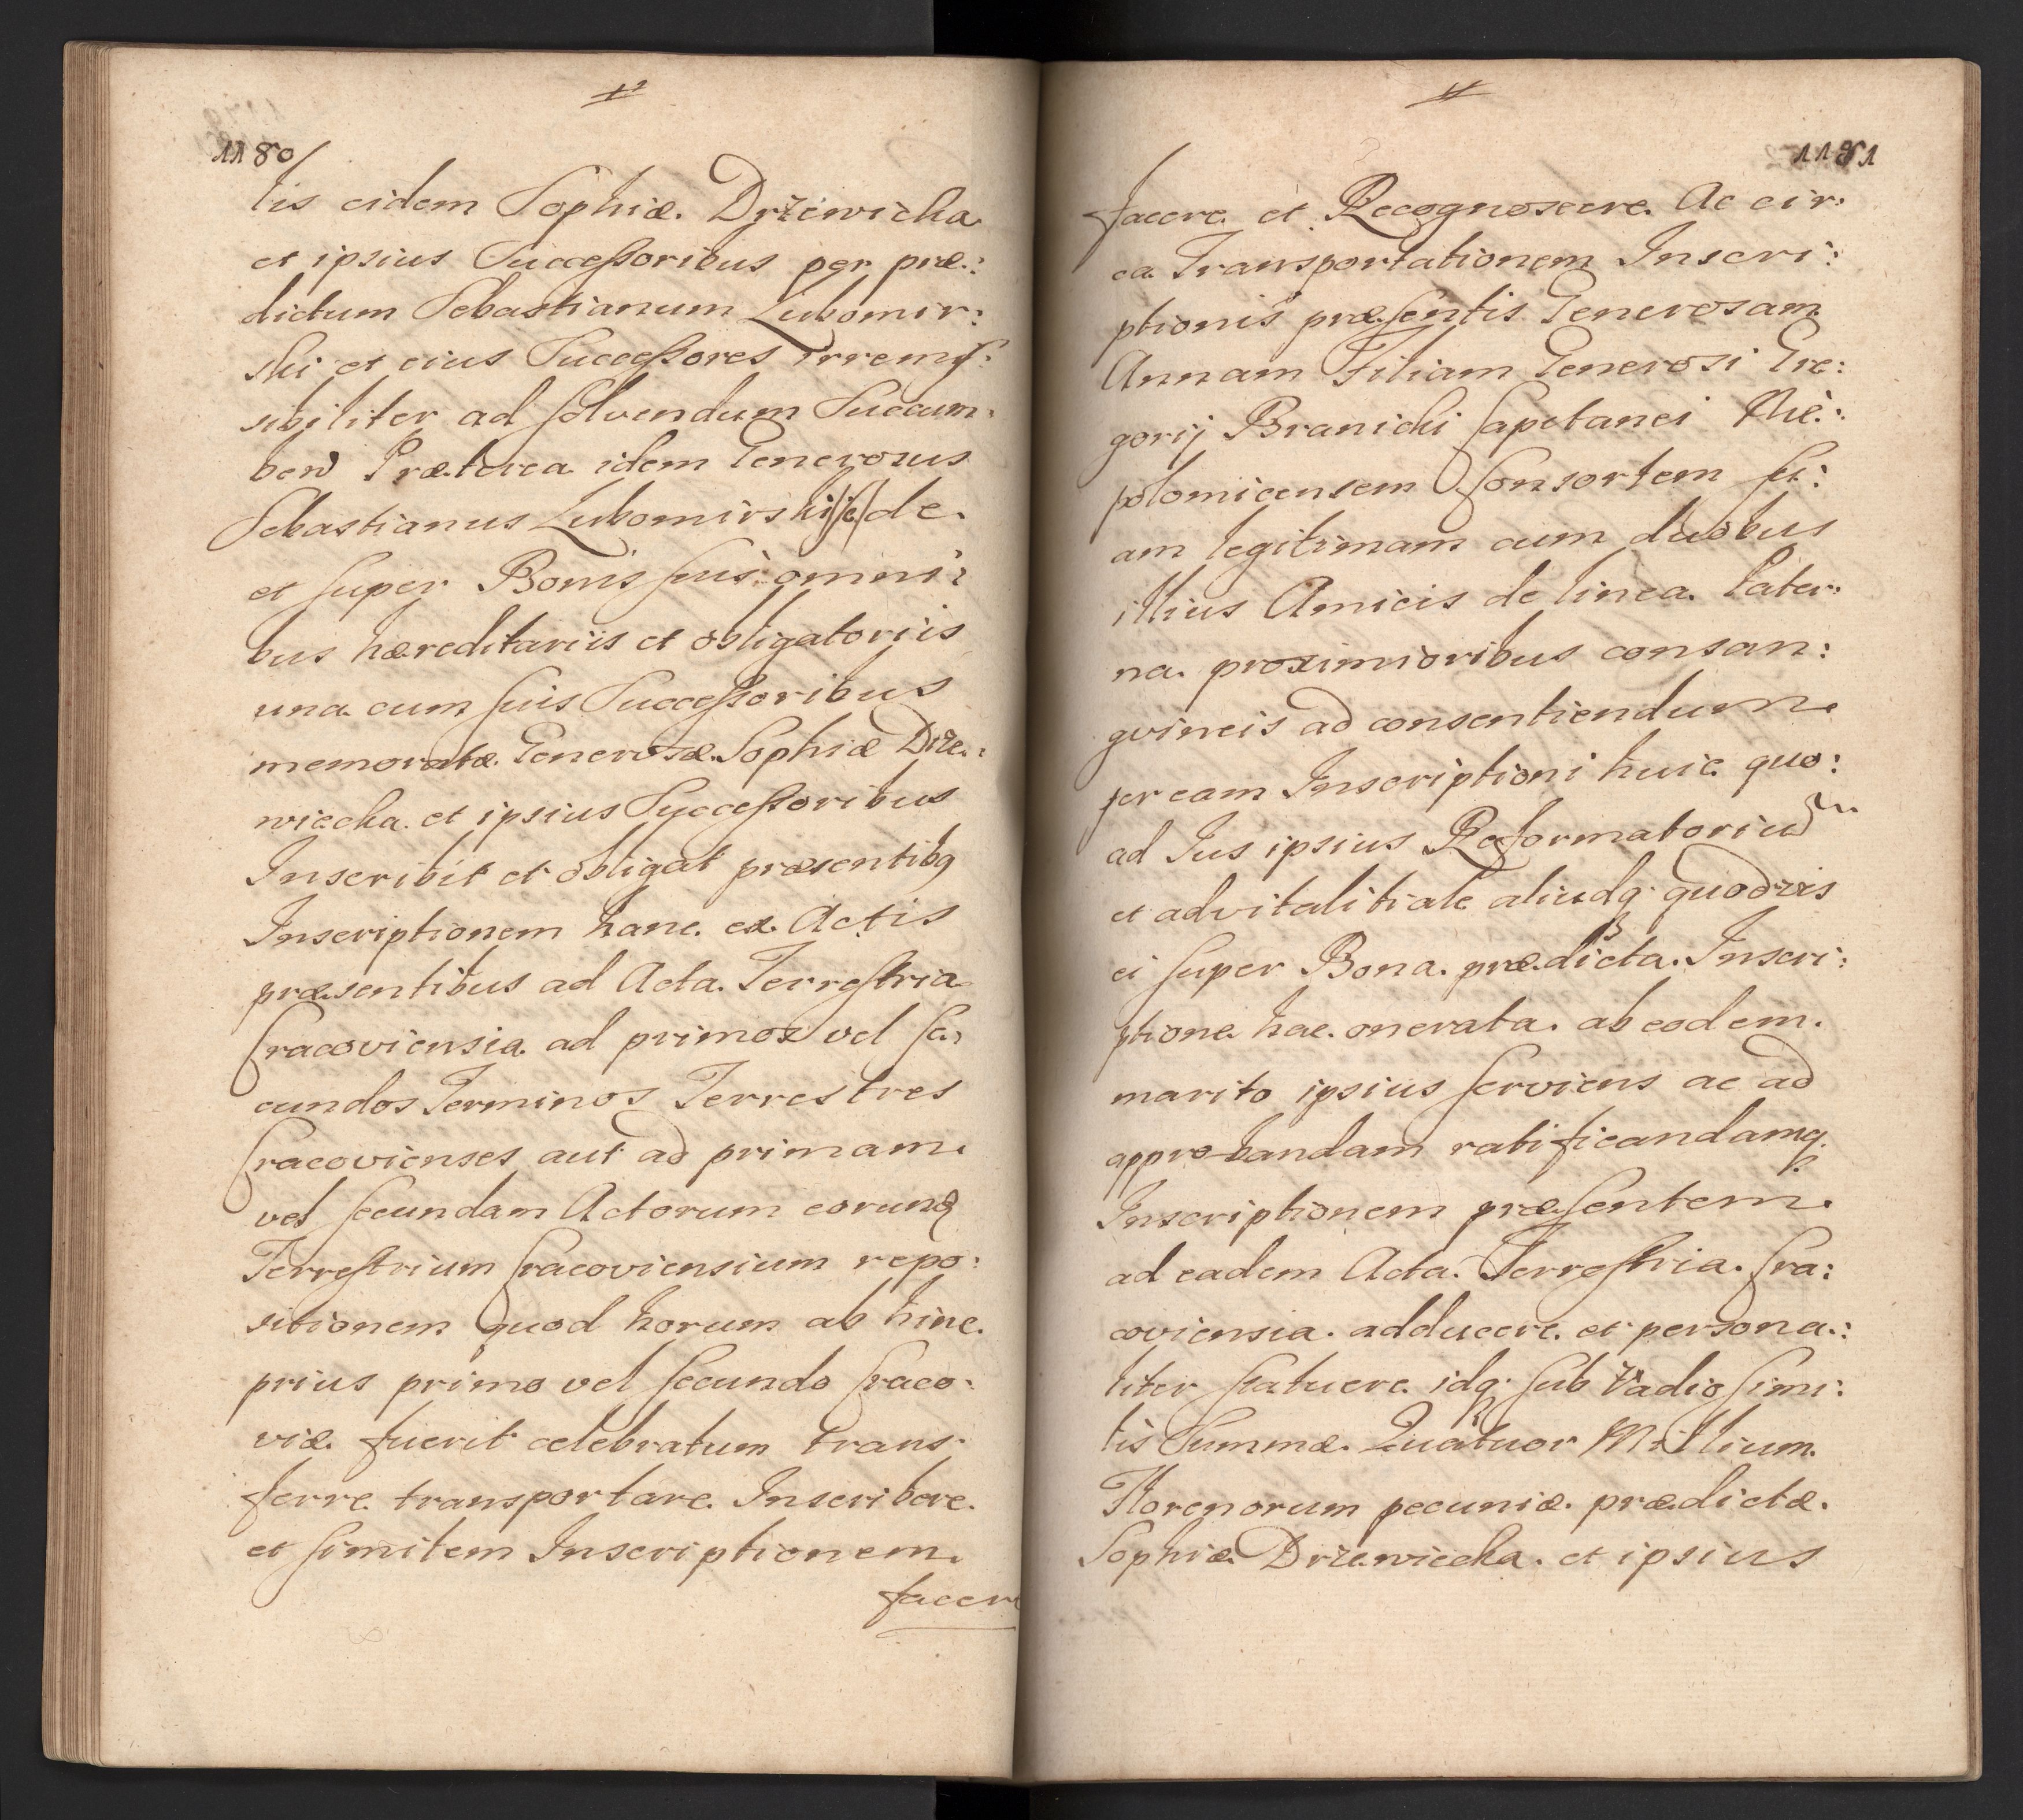 1180
tis eidem Sophiæ. Drzewicka
et ipsius Successoribus per præ:
dictum Sebastianum Lubomir:
ski et eius Successores irremis:
sibiliter ad solvendum Succum:
ben Præterea idem Generosus
Sebastianus Lubomirski /se/ de
et super Bonis suis omni:
bus hæreditariis et obligatoriis
una cum suis Successoribus
memoratæ Generosæ Sophiæ Drze:
wiecka et ipsius Successoribus
Inscribit et obligat præsentibq
Inscriptionem hanc ex Actis
præsentibus ad Acta Terrestria
Cracoviensia ad primos vel se:
cundos Terminos Terrestres
Cracovienses aut ad primam
vel secundam Actorum eorund
Terrestrium Cracoviensium repo:
sitionem quod horum ab hinc
prius primo vel secundo Craco:
viæ fuerit celebratum trans:
ferre transportare Inscribere
et similem Inscriptionem
facere
1181
facere et Recognoscere Ac cir:
ca Transportationem Inscri:
ptionis præsentis Generosam
Annam Filiam Generosi Gre:
gorij Branicki Capitanei Nie:
polomicensem Consortem su:
am legitimam cum duobus
illius Amicis de linea Pater:
na proximioribus consan:
gvineis ad consentiendum
per eam Inscriptioni huic quo:
ad Jus ipsius Reformatoriu
et advitalitiale aliudq quodvis
ei super Bona prædicta Inscri:
ptione hac onerata ab eodem
marito ipsius serviens ac ad
approbandam ratificandamq
Inscriptionem præsentem
ad eadem Acta Terrestria Cra:
coviensia adducere et persona:
liter statuere idq sub Vadio simi:
lis Summæ Quatuor Millium
Florenorum pecuniæ prædictæ
Sophiæ Drzewiecka et ipsius